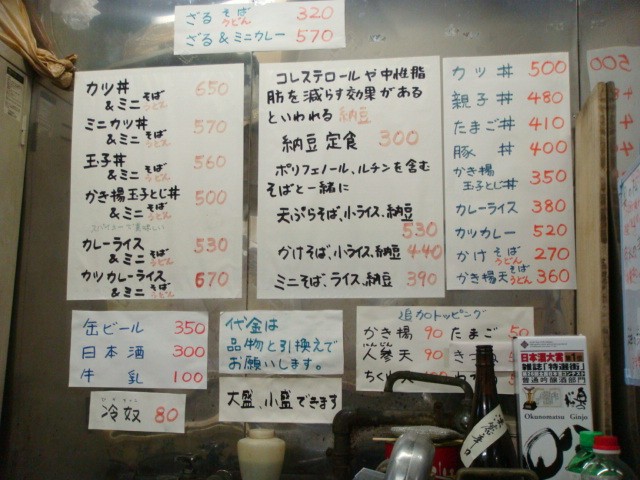 ざる そば うどん 320
ざる&ミニカレー 570
カツ丼 650
&ミニ そば うどん
ミニカツ丼 570
&ミニ そば うどん
玉子丼 560
&ミニ そば うどん
かき揚玉子とじ丼 500
&ミニ そば うどん
スパイシーで美味しい
カレーライス 530
&ミニ そば うどん
カツカレーライス 670
&ミニ そば うどん
コレステロールや中性脂
肪を減らす効果がある
といわれる 納豆
納豆定食 300
ポリフェノール、ルチンを含む
そばと一緒に
天ぷらそば、小ライス、納豆
530
かけそば、小ライス、納豆 440
ミニそば、ライス、納豆 390
カツ丼 500
親子丼 480
たまご丼 410
豚丼 400
かき揚 350
玉子とじ丼
カレーライス 380
カツカレー 520
かけ そば うどん 270
かき揚天 そば うどん 360
缶ビール 350
日本酒 300
牛乳 100
冷奴 80
代金は
品物と引換えで
お願いします。
大盛、小盛できます
追加トッピング
かき揚 90 たまご 50
にんじん
人参天 90
ちくわ
日本酒大賞
雑誌「特選街」
普通吟醸酒部門
Okunomatsu Ginjo
淡麗辛口